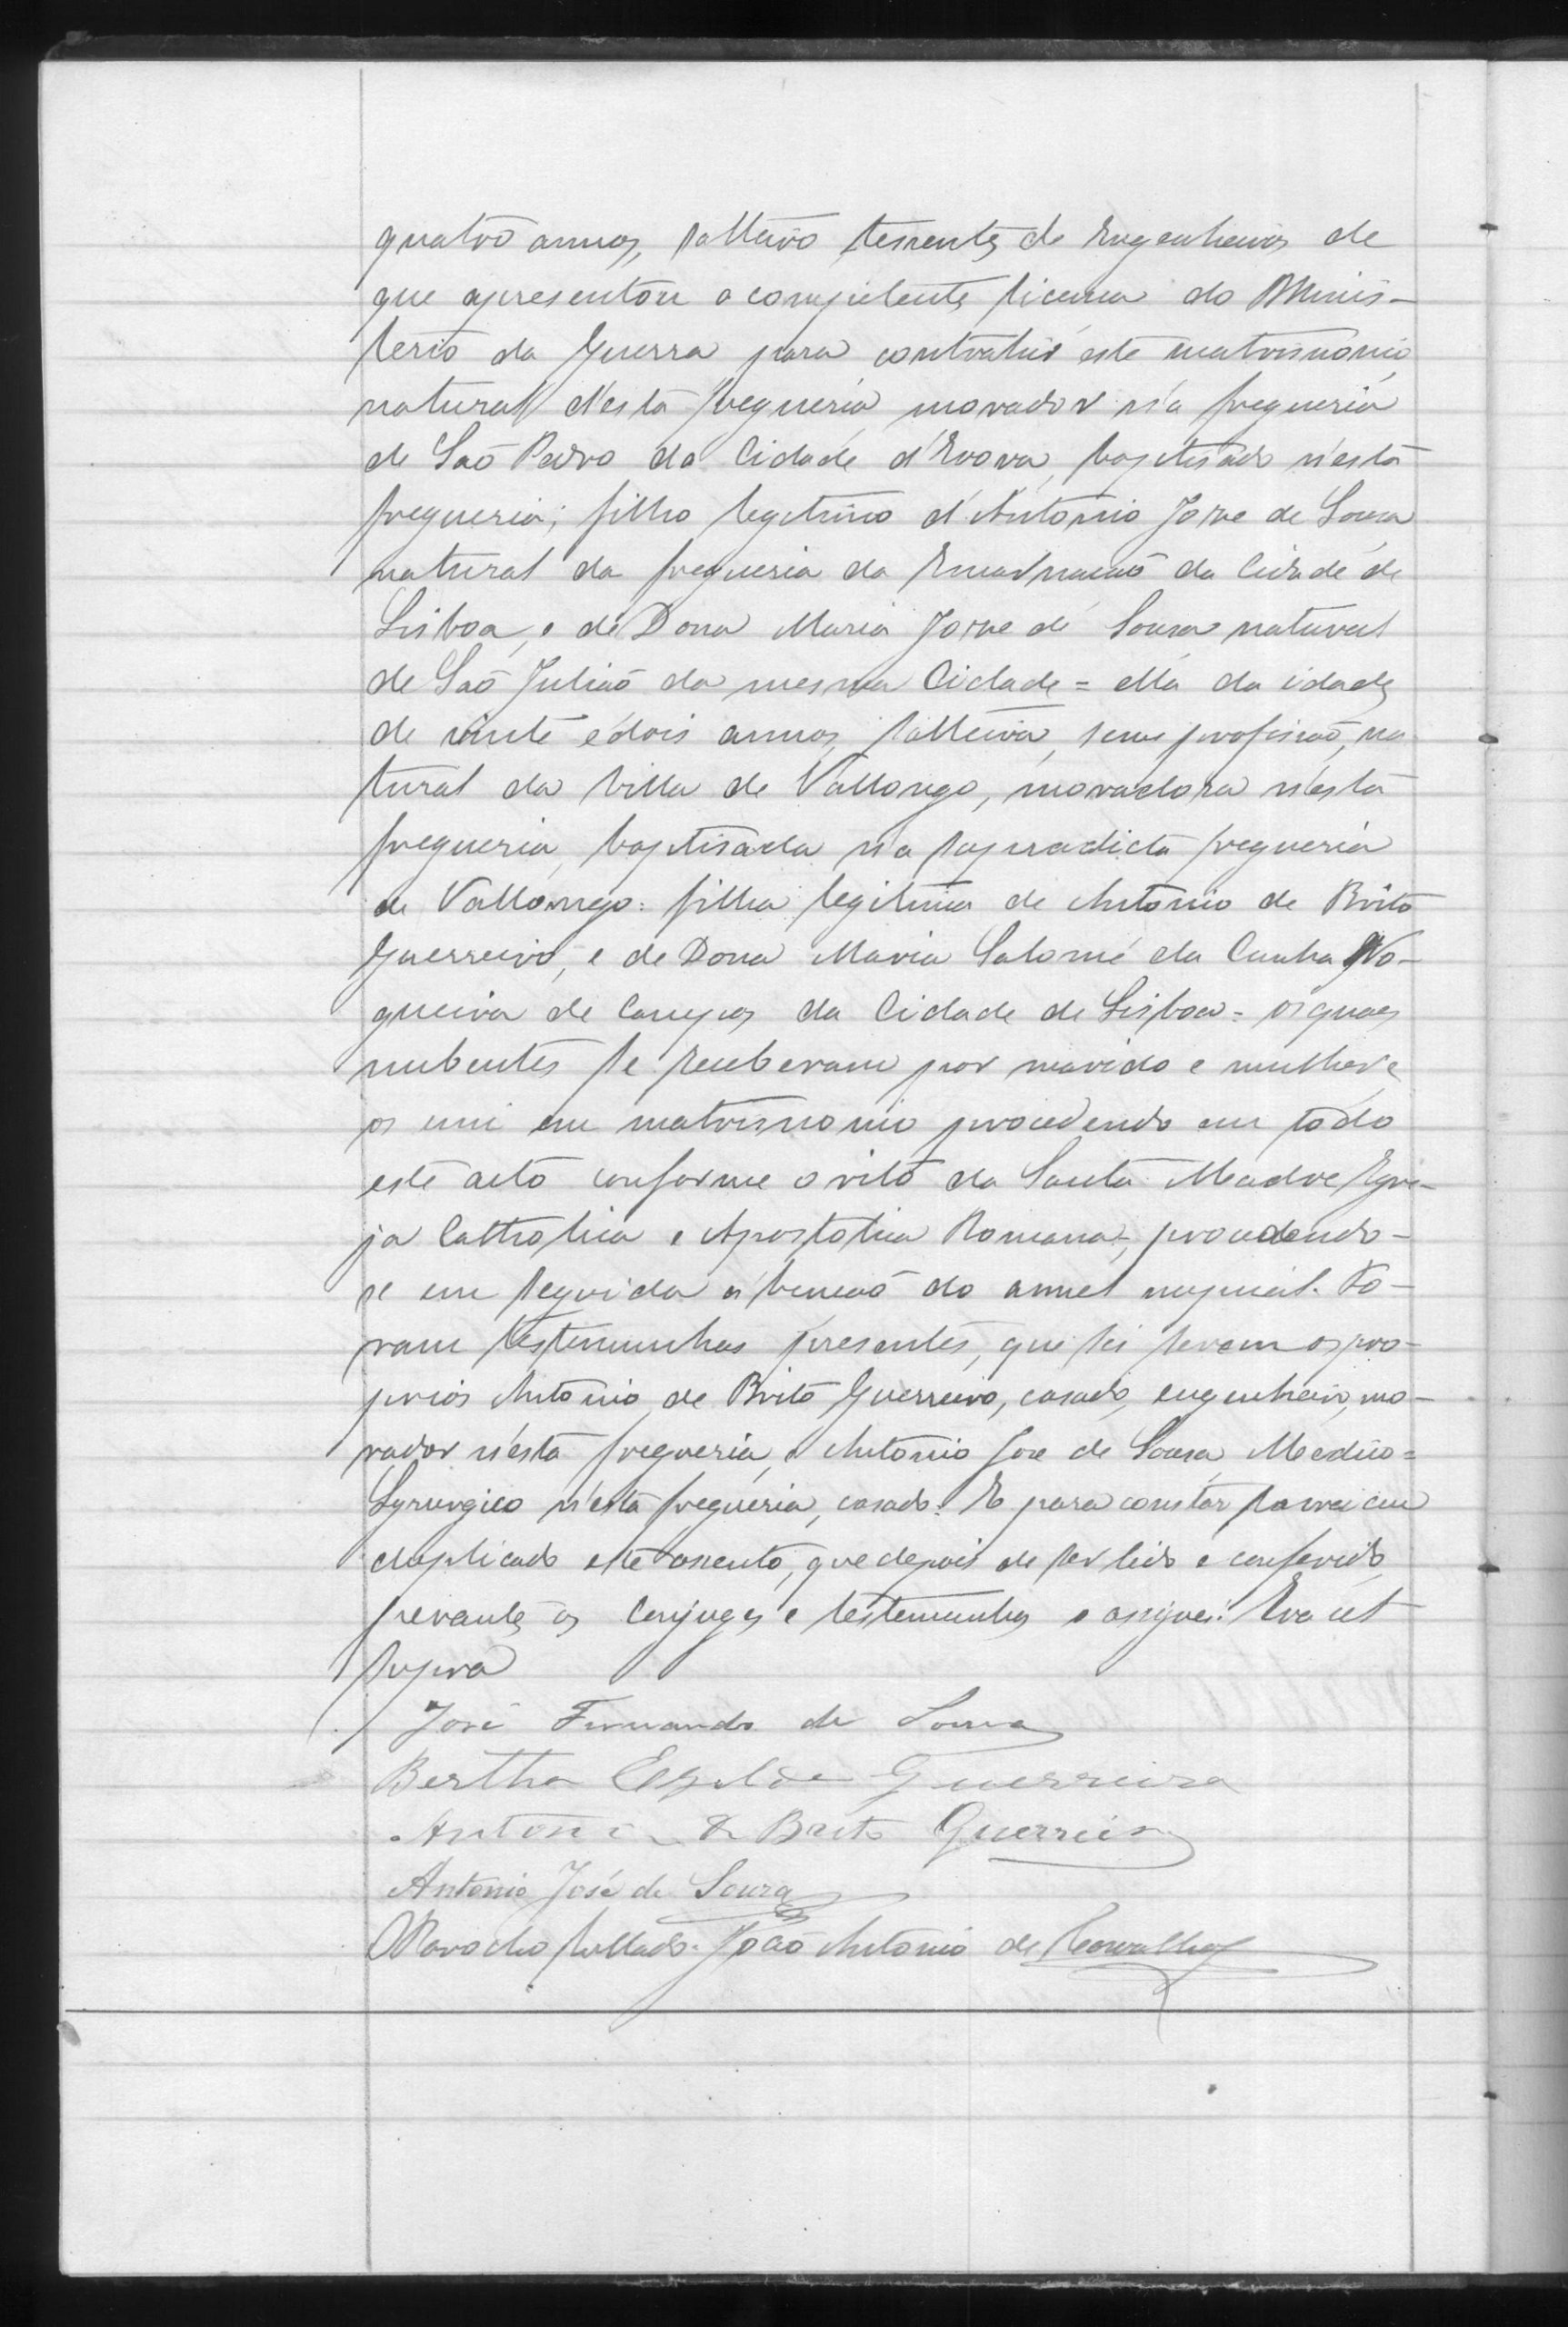 quatro annos, solteiro tenente de Engenheiros de
que apresentou a competente licença do Minis-
terio da Guerra para contrahir este matrimonio
natural d'esta freguesia, morador n'a freguesia
de São Pedro da Cidade d'Evora, baptisado n'esta
freguesia; filho legitimo d'Antonio José de Sousa
natural da freguesia da Encarnação da Cidade de
Lisboa, e de Dona Maria José de Sousa natural
de São Julião da mesma Cidade = ella da idade
de vinte e dois annos, solteira, sem profissão, na
tural da Villa de Vallongo, moradora n'esta
freguesia, baptisada n'a supradicta freguesia
de Vallongo: filha legitima de Antonio de Brito
Guerreiro, e de Dona Maria Salomé da Cunha No-
gueira de Campos da Cidade de Lisboa = os quaes
nubentes se receberam por marido e mulher e
os uni em matrimonio procedendo em todo
este acto conforme o rito da Santa Madre Egre-
ja Catholica e Apostolica Romana, procedendo-
se em seguida á benção do annel nupcial. Fo-
ram testemunhas presentes, que sei serem os pro-
prios Antonio de Brito Guerreiro, casado, engenheiro, mo-
rador n'esta freguesia, e Antonio José de Sousa Medico =
Syrurgico n'esta freguesia, casado. E para constar lavrei em
duplicado este assento, que depois de ser lido e conferido
perante os Conjuges e testemunhas o assignei. Era ut
supra
José Fernando de Sousa
Bertha Guerreiro
Antonio de Brito Guerreiro
Antonio José de Souza
O Parocho Collado. João Antonio de Carvalho